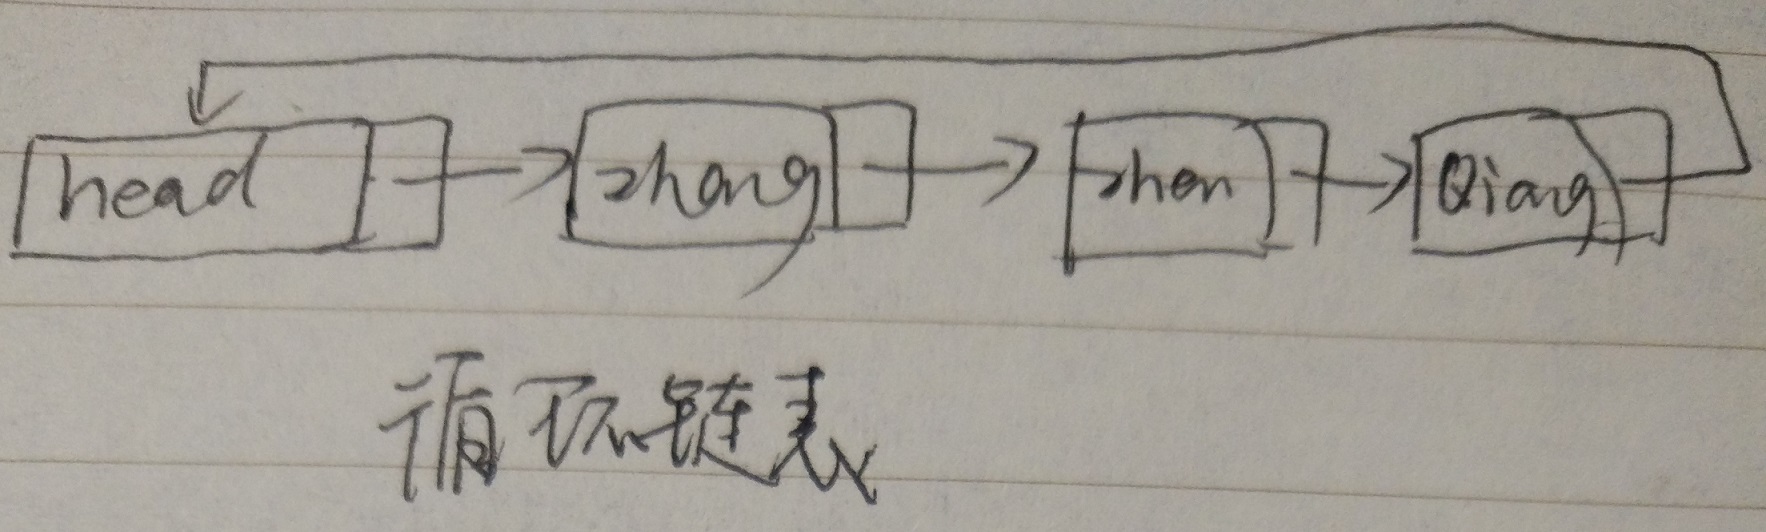 head zhang zhen Qiang
循环链表